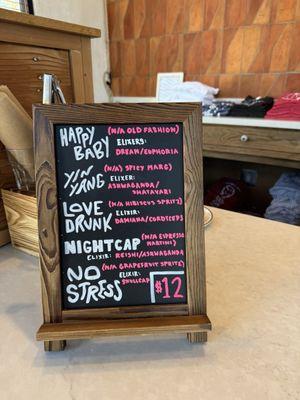 HAPPY BABY (N/A OLD FASHION)
ELIXERS:
DREAM/EUPHORIA
YIN YANG (N/A) SPICY MARG)
ELIXER:
ASHWAGANDA/
SHATAVARI
LOVE DRUNK (N/A HIBISCUS SPRITZ)
ELIXIR:
DAMIANA/CORDYCEPS
NIGHTCAP (N/A ESPRESSO
MARTINI)
ELIXIR: REISHI/ASHWAGANDA
NO STRESS (N/A GRAPEFRUIT SPRITZ)
ELIXIR:
SKULLCAP
$12